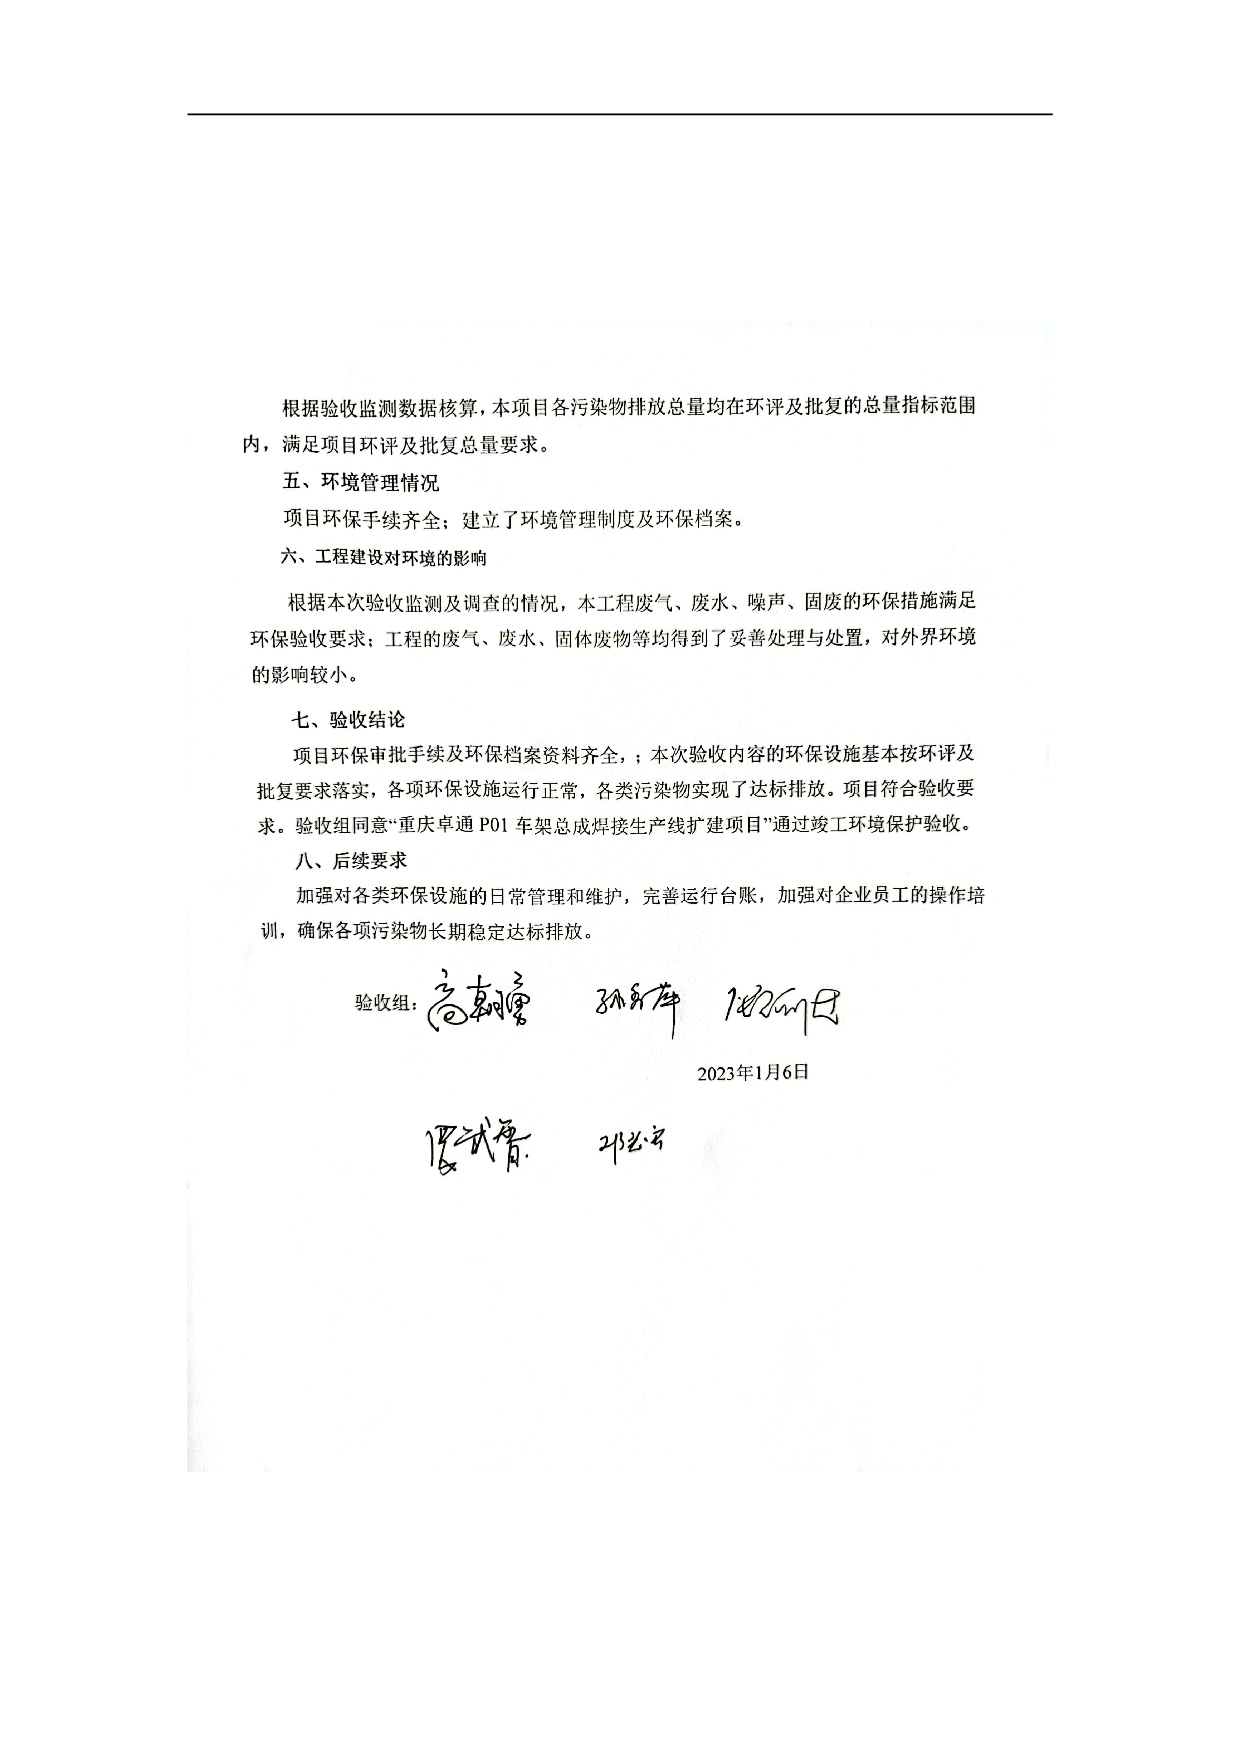 根据验收监测数据核算，本项目各污染物排放总量均在环评及批复的总量指标范围
内，满足项目环评及批复总量要求。
五、环境管理情况
项目环保手续齐全；建立了环境管理制度及环保档案。
六、工程建设对环境的影响
根据本次验收监测及调查的情况，本工程废气、废水、噪声、固废的环保措施满足
环保验收要求；工程的废气、废水、固体废物等均得到了妥善处理与处置，对外界环境
的影响较小。
七、验收结论
项目环保审批手续及环保档案资料齐全，；本次验收内容的环保设施基本按环评及
批复要求落实，各项环保设施运行正常，各类污染物实现了达标排放。项目符合验收要
求。验收组同意“重庆卓通 P01 车架总成焊接生产线扩建项目”通过竣工环境保护验收。
八、后续要求
加强对各类环保设施的日常管理和维护，完善运行台账，加强对企业员工的操作培
训，确保各项污染物长期稳定达标排放。
验收组：高朝勇
2023年1月6日